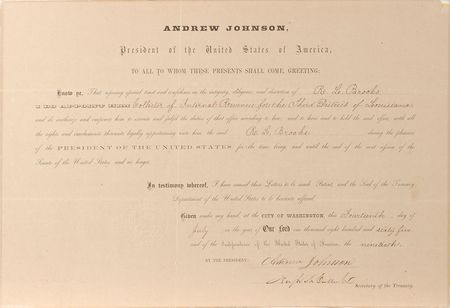 ANDREW JOHNSON,
President of the United States of America,
TO ALL TO WHOM THESE PRESENTS SHALL COME, GREETING:
Know ye, That reposing special trust and confidence in the integrity, diligence, and discretion of R. G. Brooks
I DO APPOINT HIM Collector of Internal Revenue for the Third District of Louisiana
and do authorize and empower him to execute and fulfil the duties of that office according to law; and to have and to hold the said office, with all
the rights and emoluments thereunto legally appertaining unto him the said R. G. Brooks during the pleasure
of the PRESIDENT OF THE UNITED STATES for the time being, and until the end of the next session of the
Senate of the United States and no longer.
In testimony whereof, I have caused these Letters to be made Patent, and the Seal of the Treasury
Department of the United States to be hereunto affixed.
Given under my hand, at the CITY OF WASHINGTON, this fourteenth day of
July in the year of Our Lord one thousand eight hundred and sixty five
and of the Independence of the United States of America, the ninetieth.
BY THE PRESIDENT: Andrew Johnson
Secretary of the Treasury.